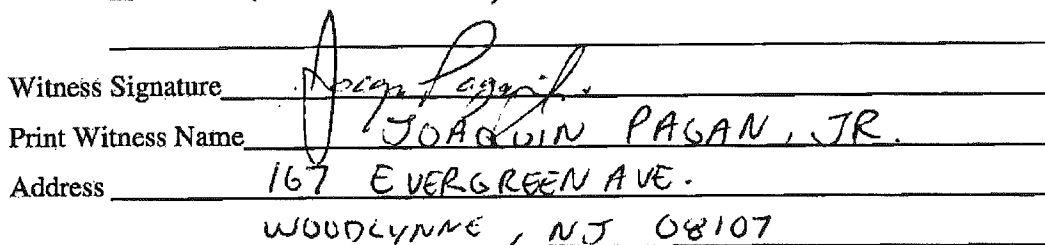 Witness Signature Joaqn Pagan Jr.
Print Witness Name JOAQUIN PAGAN, JR.
Address 167 EVERGREEN AVE.
WOODLYNNE, NJ 08107